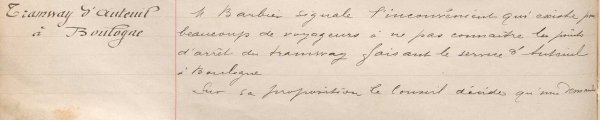 Tramway d'Auteuil
à Boulogne
M. Barbier signale l'inconvénient qui existe pour
beaucoup de voyageurs à ne pas connaitre les points
d'arrêt du tramway faisant le service d'Auteuil
à Boulogne
Sur sa proposition le Conseil décide qu'une demande